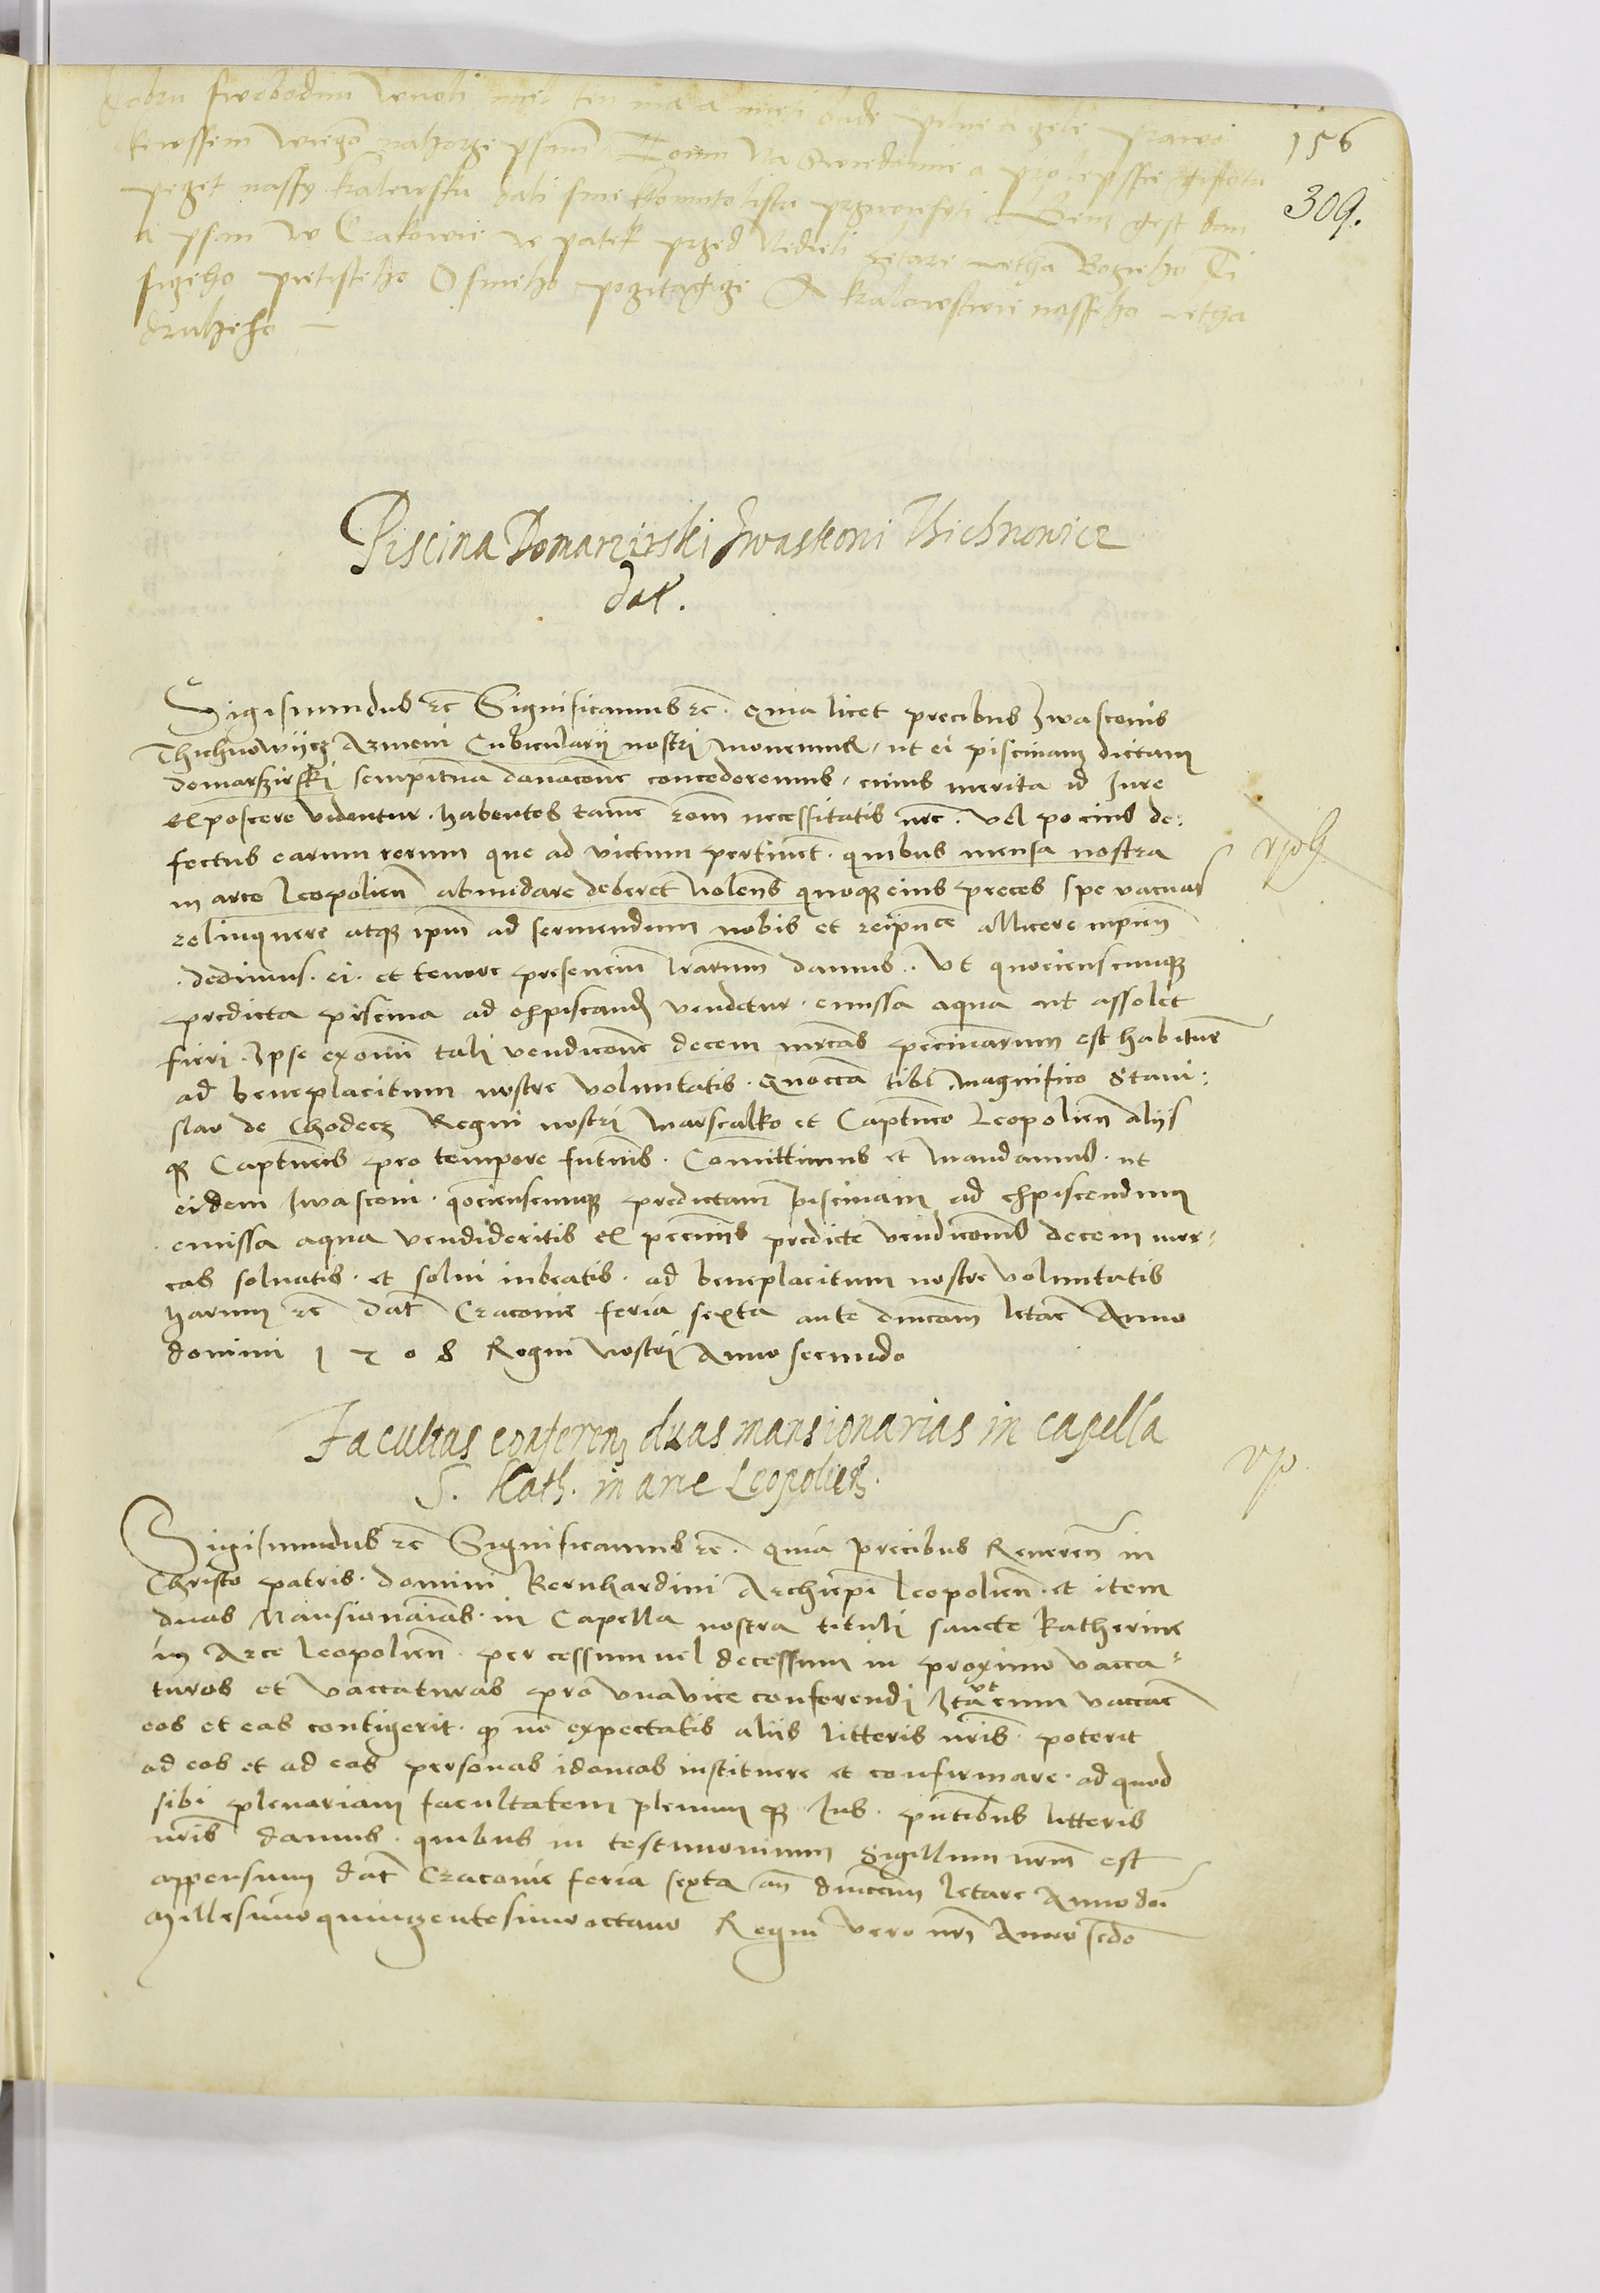 156
309.
dobru swobodnu
nassy kralewsku dali sme k tomuto listu przywiesyti gest dan
a psan w Crakowie w patek przed Nedieli letare Letha Bozieho Ti
sizeho pietisteho Osmeho pogitagicze A kralowstwie nasseho letha
druheho —
Piscina Domarzirski Iwaskoni Thichnowicz
dat.
Sigismundus etc Significamus etc. Quia licet precibus Iwasconis
Thichnowycz Armeni Cubicularij nostri moueremur, ut ei piscinam dictam
domarszirski sempiterna donacone concederemus, cuius merita id Iure
exposcere videntur. habentes tamen rōm necessitatis nrē. vel pocius de:
fectus earum rerum que ad victum pertinent. quibus mensa nostra
in arce leopolien̄ abundare deberet Nolentes quoque eius preces spe vacuas
relinquere atque ipm̄ ad seruiendum nobis et allicere
dedimus. ei. et tenore presencium lrārum damus. Ut quocienscunque
predicta piscina ad expiscand vendetur. emissa aqua ut assolet
fieri. Ipse ex omni tali vendicone decem mrcas pecuniarum est habiturus
ad beneplacitum nostre voluntatis. Quocca tibi magnifico Stani:
slao de Chodecz Regni nostri marscalko et Captneo Leopolien̄ alijs
que Captneis pro tempore futuris. Comittimus et mandamus. ut
eidem Iwasconi. quocienscunque predictam piscinam ad expiscendum
emissa aqua vendideritis ex pecunijs predicte vendiconis decem mar:
cas soluatis. et solui iubeatis. ad beneplacitum nostre voluntatis
harum etc Dat Cracouie feria sexta ante dnicam letare Anno
domini 1508 Regni Nostri Anno secundo
Facultas conferen duas mansionarias in capella
S. Kath. in arce Leopolien.
vp
Sigismundus etc Significamus etc. Quia precibus Reueren̄ in
Christo patris. domini Bernhardini Archiepi leopolien̄. et item
duas Mansionarias. in Capella nostra tituli sancte Katherine
in Arce leopolien̄. per cessum vel decessum in proximo vacca-
turos et vaccaturas pro vna vice conferendi Ita ut cum vaccare
eos et eas contigerit. quod nō expectatis aliis litteris nris. poterit
ad eos et ad eas personas idoneas instituere et confirmare. ad quod
sibi plenariam facultatem plenum que Ius. pntibus litteris
nris damus. quibus in testimonium Sigillum nrm est
appensum Dat Cracouie feria sexta an dnicam letare Anno dni
Millesimo quingentesimo octauo Regni vero nri Anno scdo